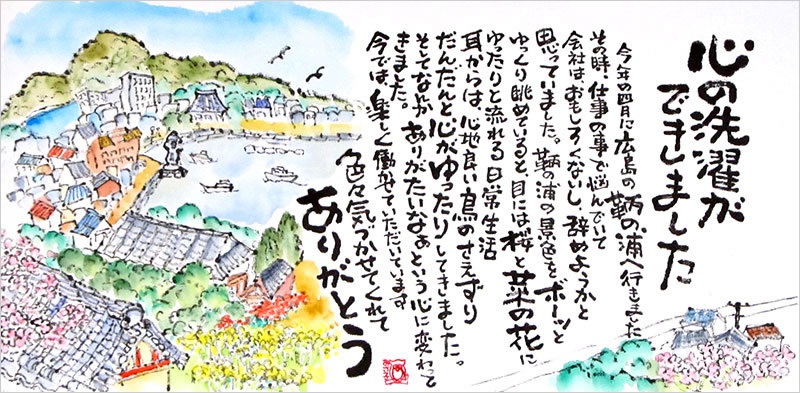 心の洗濯が
できました
今年の四月に広島の鞆の浦へ行きました
その時、仕事の事で悩んでいて
会社はおもしろくないし、辞めようかと
思っていました。鞆の浦の景色をボーッと
ゆっくり眺めていると、目には桜と菜の花に
ゆったりと流れる日常生活
耳からは、心地良い鳥のさえずり
だんだんと心がゆったりしてきました。
そしてなぜか、ありがたいなぁという心に変わって
きました。
今では、楽しく働かせていただいています
色々気づかせてくれて
ありがとう